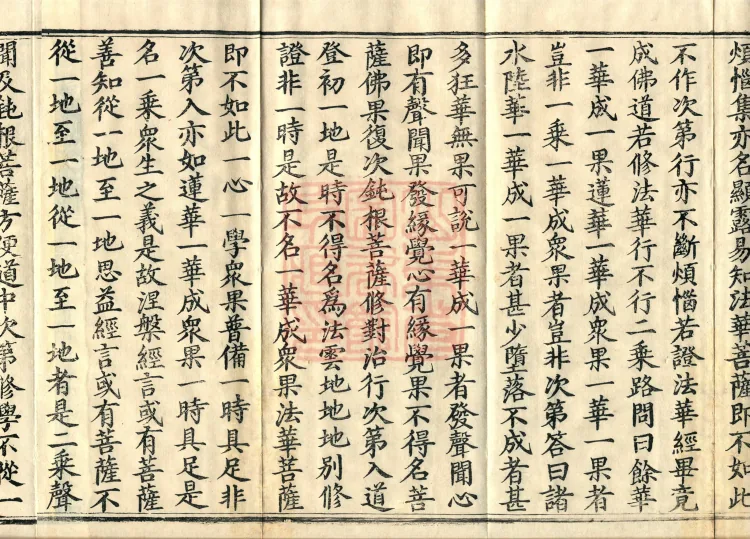 煩惱集亦名顯露易知法華菩薩即不如此
不作次第行亦不斷煩惱若證法華經畢竟
成佛道若修法華行不行二乘路問曰餘華
一華成一果蓮華一華成眾果一華一果者
豈非一乘一華成眾果者豈非次第答曰諸
水陸華一華成一果者甚少墮落不成者甚
多狂華無果可說一華成一果者發聲聞心
即有聲聞果發緣覺心有緣覺果不得名菩
薩佛果復次鈍根菩薩修對治行次第入道
登初一地是時不得名為法雲地地地別修
證非一時是故不名一華成眾果法華菩薩
即不如此一心一學眾果普備一時具足非
次第入亦如蓮華一華成眾果一時具足是
名一乘眾生之義是故涅槃經言或有菩薩
善知從一地至一地思益經言或有菩薩不
從一地至一地從一地至一地者是二乘聲
聞及鈍根菩薩方便道中次第修學不從一